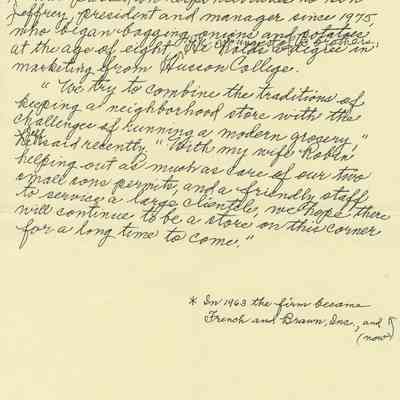 Jeffrey, president and manager since 1975,
who began bagging onions and potatoes
at the age of eight. He holds a degree in
marketing from Husson College.
"We try to combine the traditions of
keeping a neighborhood store with the
challenges of running a modern grocery,"
he said recently. "With my wife Robin
helping out as much as care of our two
small sons permits, and a friendly staff
to service a large clientele, we hope there
will continue to be a store on this corner
for a long time to come."
* In 1963 the firm became
French and Brawn, Inc., and
(now)